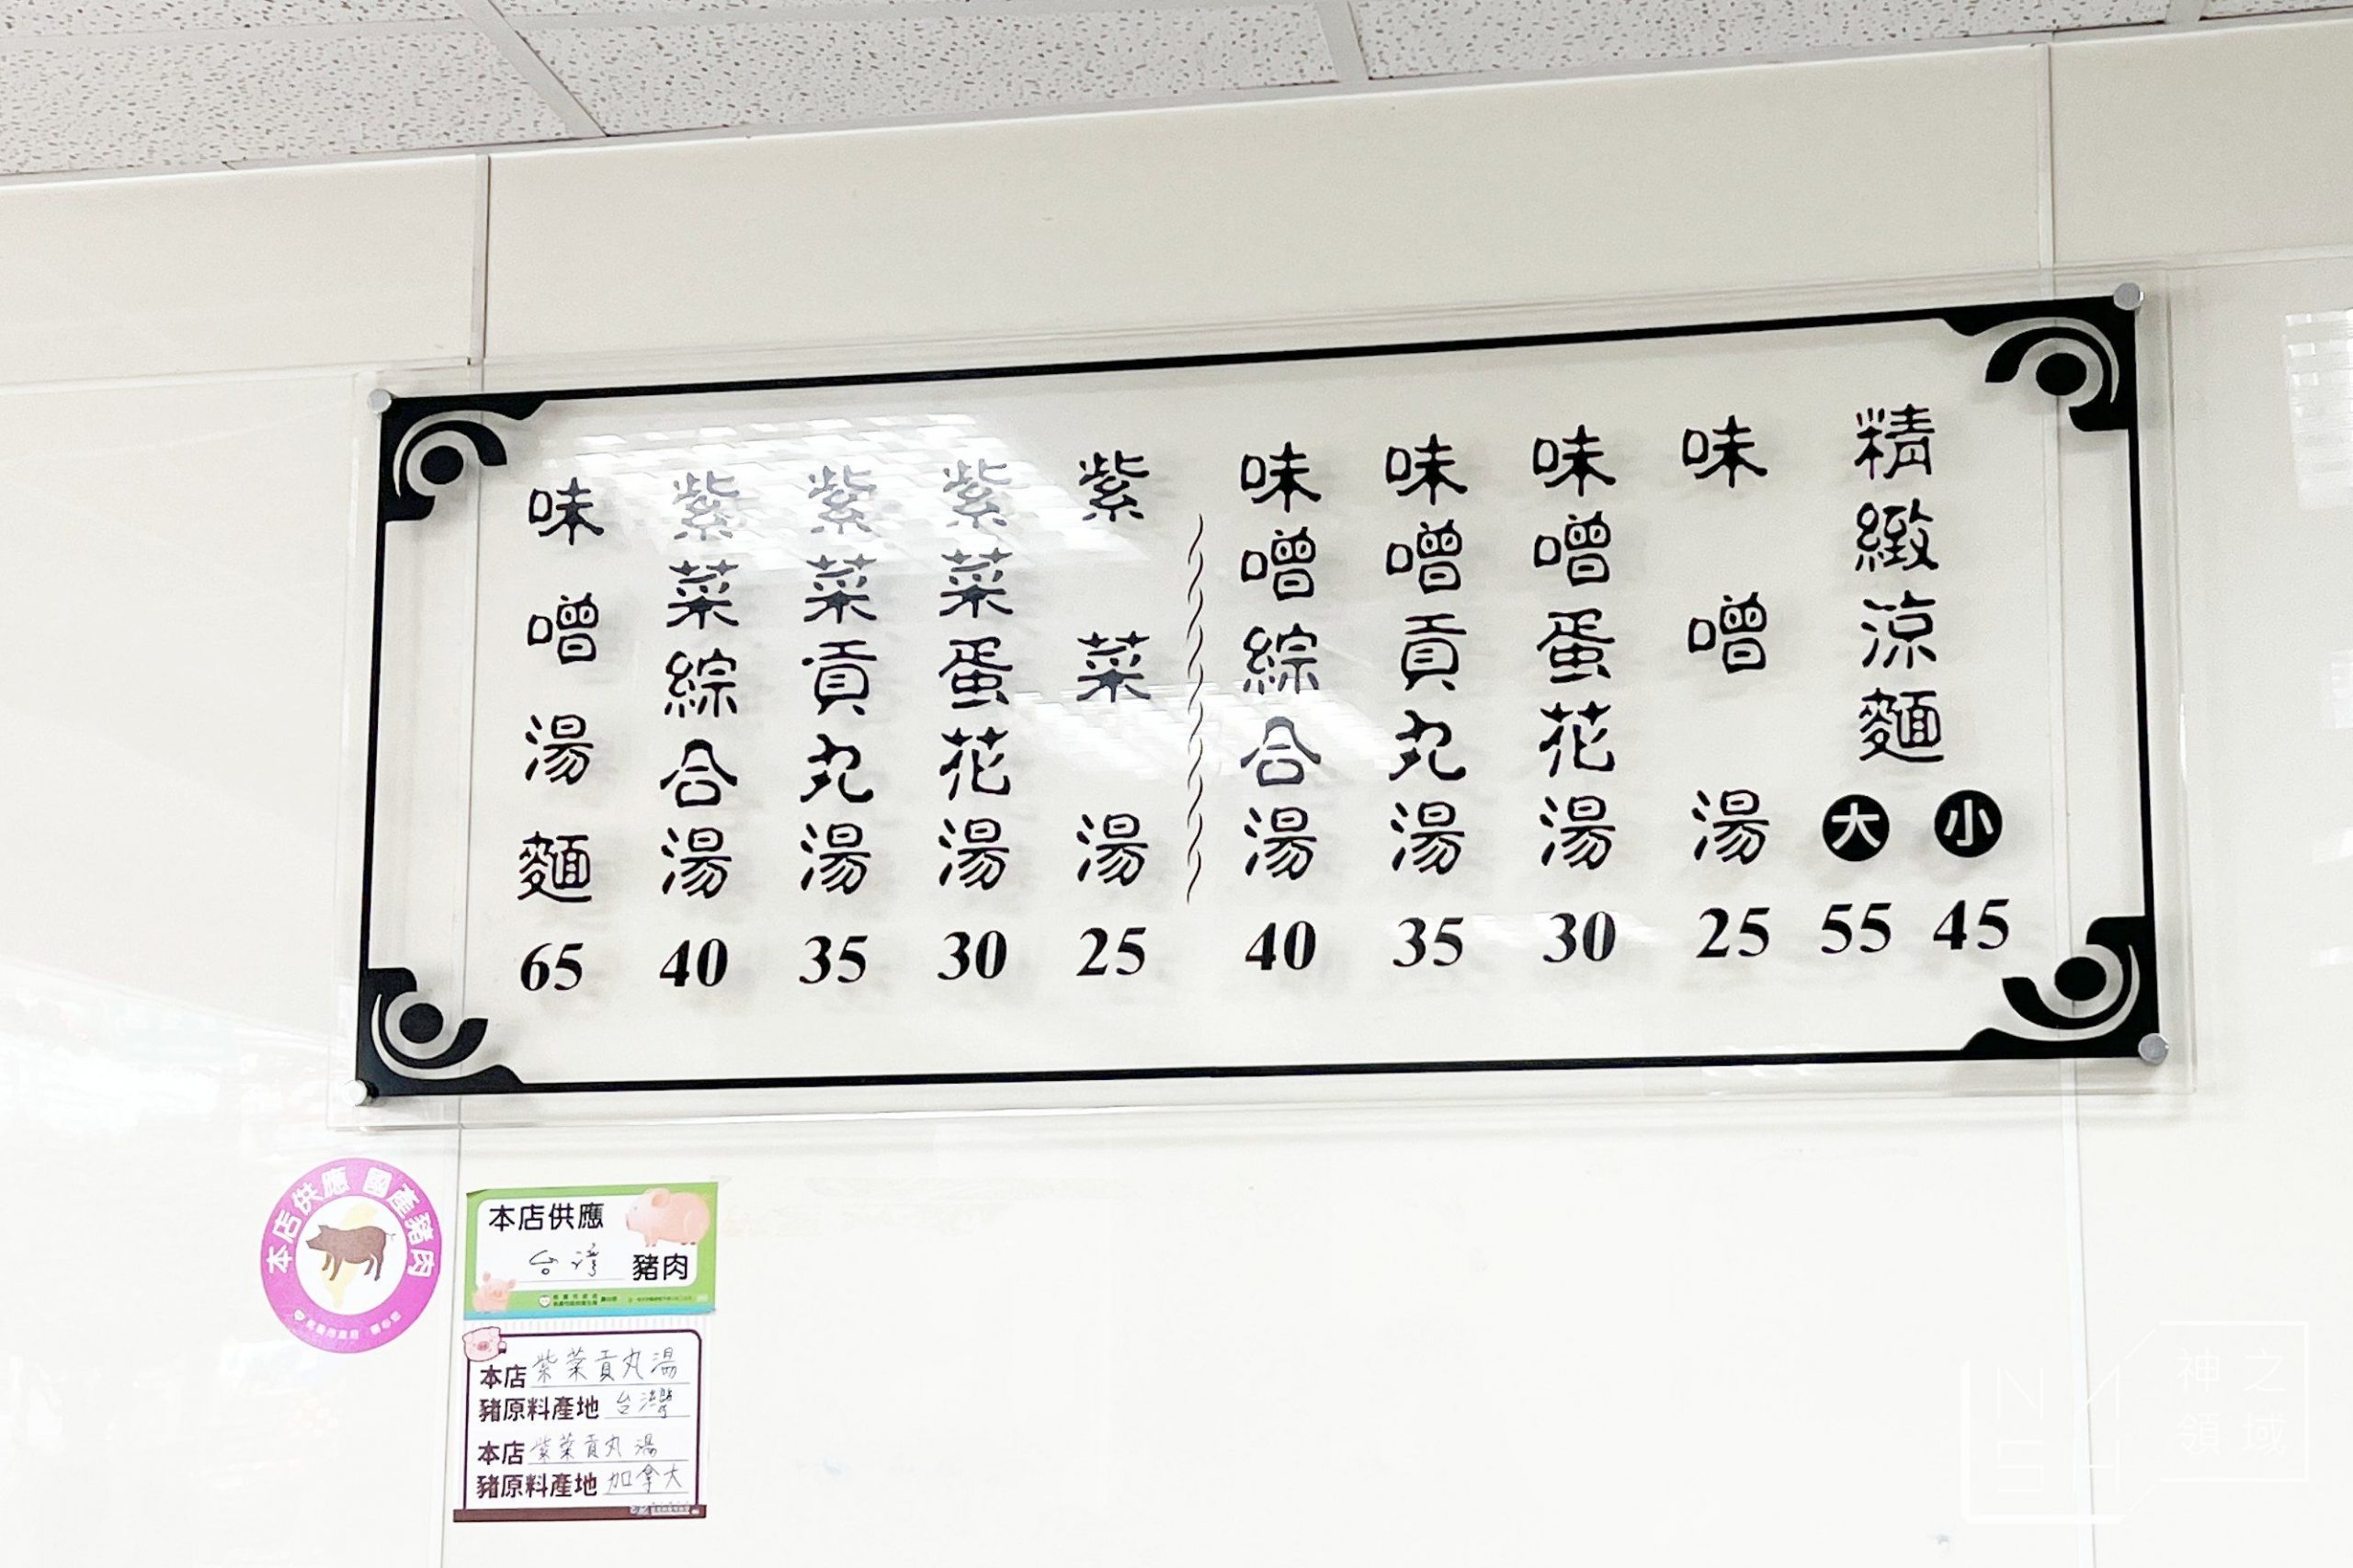 精緻涼麵 小 45 大 55
味噌湯 25
味噌蛋花湯 30
味噌貢丸湯 35
味噌綜合湯 40
紫菜湯 25
紫菜蛋花湯 30
紫菜貢丸湯 35
紫菜綜合湯 40
味噌湯麵 65
本店供應 國產豬肉
本店供應
台灣 豬肉
本店 紫菜貢丸湯
豬原料產地 台灣
本店 紫菜貢丸湯
豬原料產地 加拿大
神之
領域